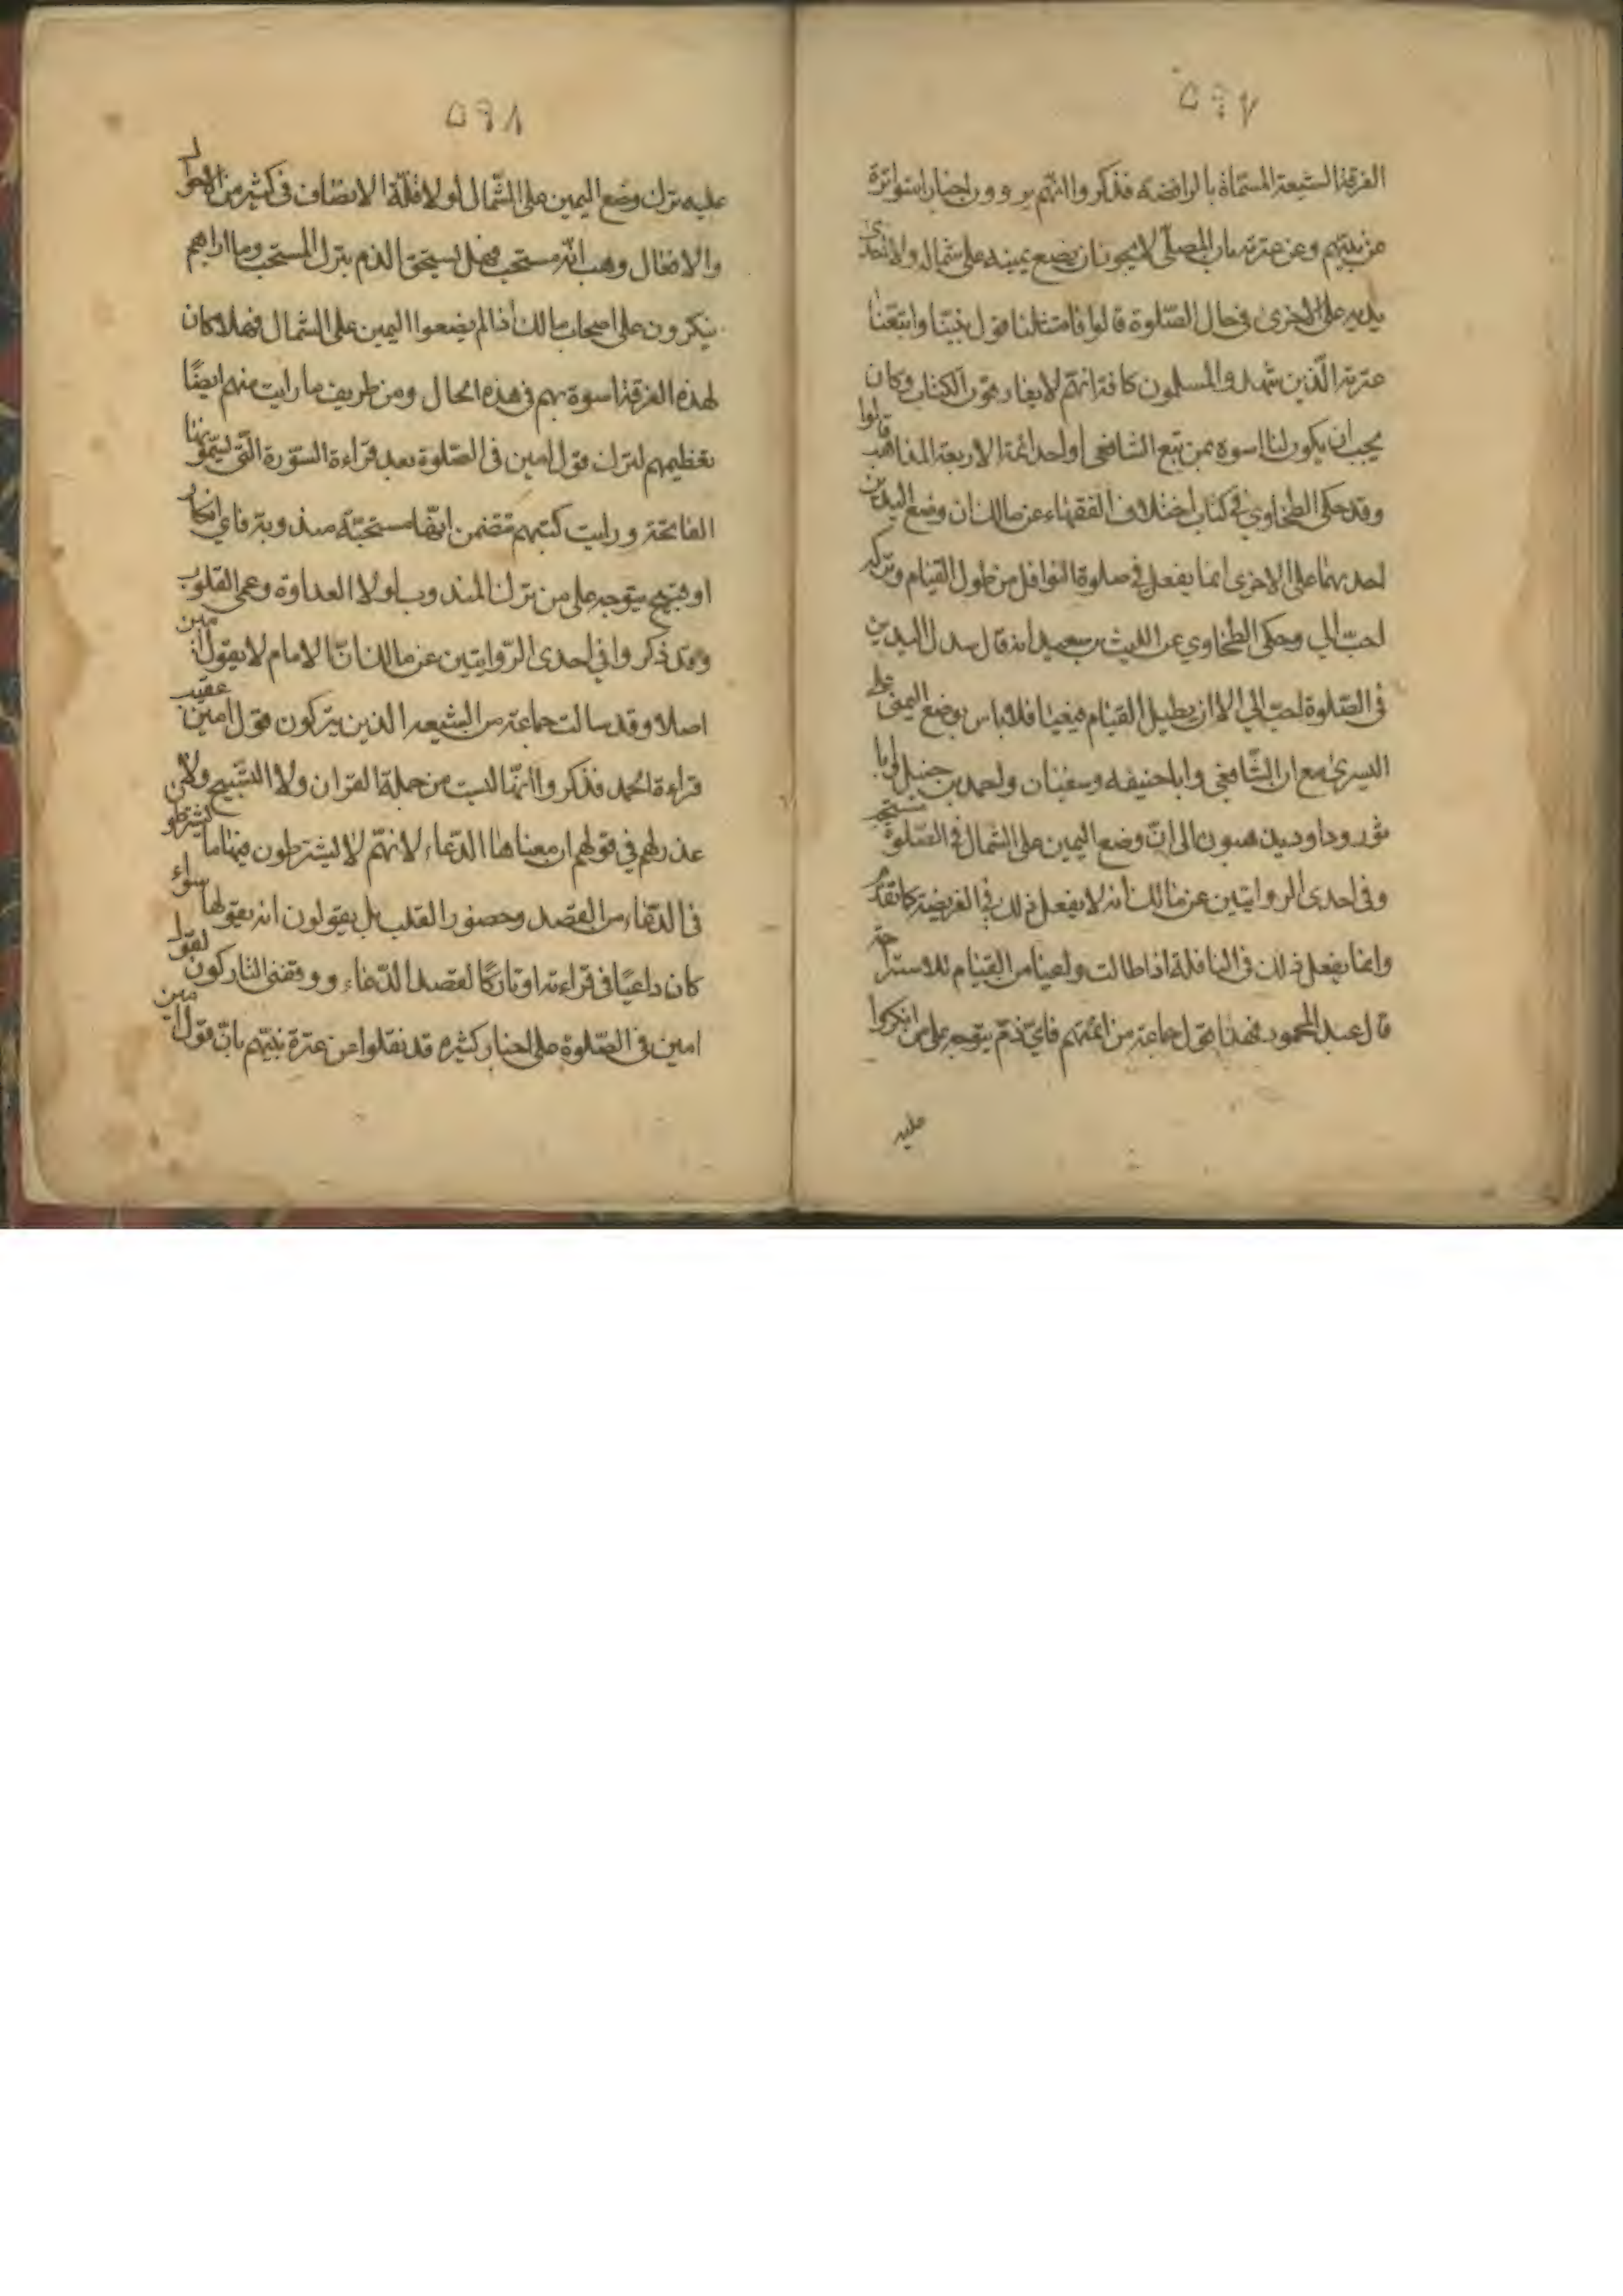 ٥٩٧
الفرقة الشيعة المسماة بالرافضه فذكروا انهم يروون اخبار امتواترة
عن نبيهم وعن عترته بان المصلّى لا يجوز ان يضع يمينه على شماله ولا احدى
يديه على الاخرى في حال الصّلوة قالوا فامتثلنا قول نبيّنا واتبعنا
عترته الّذين شهد المسلمون كافة انهم لا يفارقون الكتاب وكان
يجب ان يكون لنا اسوة بمن تبع الشافعى او احد ائمة الاربعة المذاهب قالوا
وقد حكى الطحاوي في كتاب اختلاف الفقهاء عن مالك ان وضع اليدين
احديهما على الاخرى انما يفعل في صلوة النوافل من طول القيام وتركه
احبّ الي وحكى الطحاوي عن الليث بن سعيد انه قال سدل اليدين
في الصّلوة احبّ الي الا ان يطيل القيام فيعيا فلا باس بوضع اليمنى على
اليسرى مع ان الشّافعي وابا حنيفه وسفيان واحمد بن حنبل وابا
ثور وداود يذهبون الى انّ وضع اليمين على الشمال في الصّلوة مستحبّ
وفي احدى الروايتين عن مالك انه لا يفعل ذلك في الفريضة كما تقدّم
وانما يفعل ذلك في النافلة اذا طالت ولعيا من القيام للاستراحة
قال عبد المحمود فهذا قول جماعة من ائمتهم فايّ ذمّ يتوجه على من انكروا
عليه
٥٩٨
عليه ترك وضع اليمين على الشّمال لو لا قلّة الانصاف في كثير من الاحوال
والافعال وهب انّه مستحب فهل يستحق الذم بترك المستحب وما اراهم
ينكرون على اصحاب مالك اذا لم يضعوا اليمين على الشمال فهلا كان
لهذه الفرقة اسوة بهم في هذه الحال ومن طريف ما رايت منهم ايضًا
تعظيمهم لترك قول امين في الصّلوة بعد قراءة السّورة الّتي يسمّونها
الفاتحة ورايت كتبهم تتضمن انّها مستحبّة مندوبة فاي انكار
او قبيح يتوجه على من ترك المندوب لو لا العداوة وعمى القلوب
وقد ذكروا في احدى الرّوايتين عن مالك انّ الامام لا يقول امين
اصلا وقد سالت جماعة من الشيعه الذين يتركون قول امين عقيب
قراءة الحمد فذكروا انّها ليست من جملة القران ولا التسبيح ولا
عذر لهم في قولهم ان معناها الدّعاء لانهّم لا ليشترطون فيها ما يشترطو
في الدّعاء من القصد وحضور القلب بل يقولون انه يقولها سواء
كان داعيًا في قراءته او تاركًا لقصد الدّعاء ووقفنى التاركون لقول
امين في الصّلوة على اخبار كثيره قد نقلوا عن عترة نبيّهم بانّ قول امين